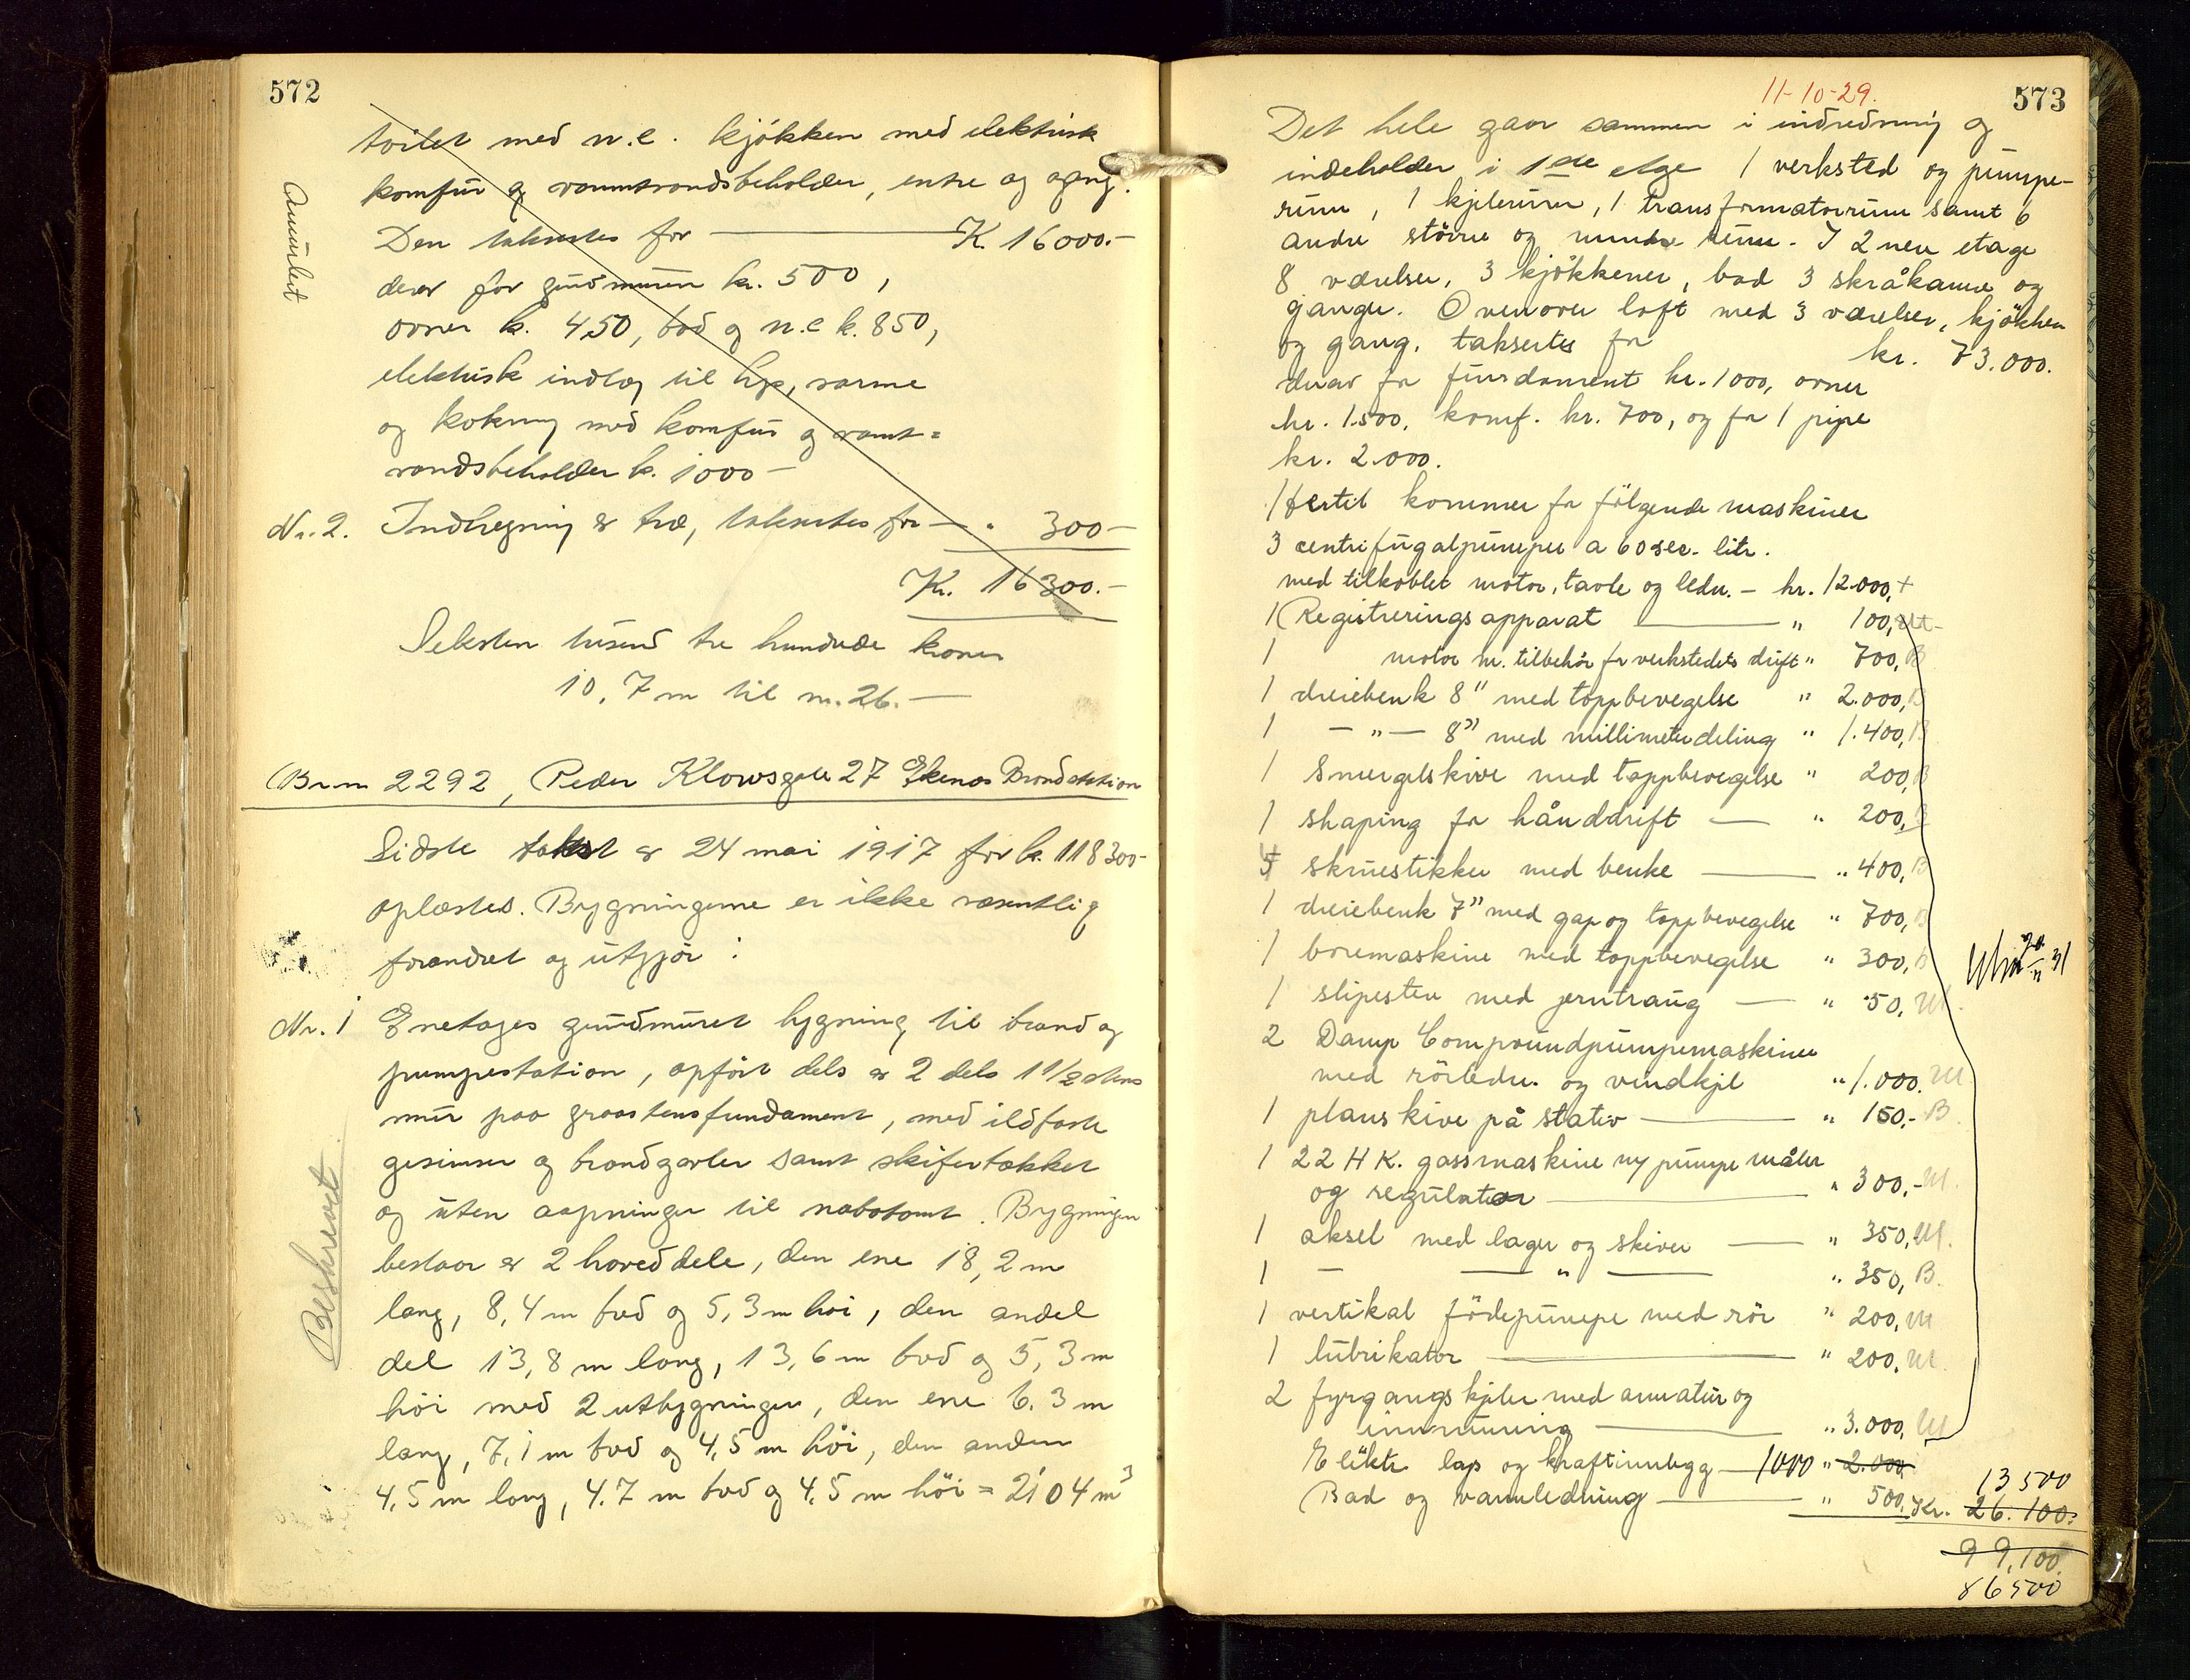 572
toilet med w.c. kjøkken med elektrisk
komfur og varmtvandsbeholder, entre og gang.
Annulert
Den takseres for — K. 16000.-
derav for grundmuren kr. 500,
ovner kr. 450, bad og w.c kr. 850,
elektrisk indlæg til lys, varme
og kokning med komfur og varmt=
vandsbeholder kr. 1000 -
Nr. 2. Indhegning av træ, takseres for — " 300 -
Kr. 16300.-
Seksten tusend tre hundrede kroner
10,7 m til nr. 26. —
Br.nr 2292, Peder Klowsgate 27 Ekenæs Brandstation
Sidste takst av 24 mai 1917 for kr. 118300-
oplæstes. Bygningerne er ikke væsentlig
forandret og utgjør :
Nr. 1 Enetages grundmuret bygning til brand og
pumpestation, opført dels av 2 dels 1 1/2 stens
mur paa graastensfundament, med ildfaste
gesimser og brandgavler samt skifertækket
og uten aapninger til nabotomt. Bygningen
Beskrevet
bestaar av 2 hoveddele, den ene 18,2 m
lang, 8,4 m bred og 5,3 m høi, den andel
del 13,8 m lang, 13,6 m bred og 5,3 m
høi med 2 utbygninger, den ene 6.3 m
lang, 7,1 m bred og 4,5 m høi, den anden
4,5 m lang, 4.7 m bred og 4,5 m høi = 2104 m³
11-10-29.
573
Det hele gaar sammen i indredning og
indeholder i 1ste etge 1 verksted og pumpe-
rum, 1 kjelerum, 1 transformatorrum samt 6
andre større og mindre rum. I 2nen etage
8 værelser, 3 kjøkkener, bad 3 skråkamre og
ganger. Ovenover loft med 3 værelser, kjøkken
og gang, taksertes for kr. 73.000.
derav for fundament kr. 1000, ovner
kr. 1.500, komf. kr. 700, og for 1 pipe
kr. 2.000.
Hertil kommer for følgende maskiner
3 centrifugalpumper a 60 sec. litr.
med tilkoblet motor, tavle og ledn. - kr. 12.000,+
1 Registreringsapparat — " 100, Ut-
1 motor m. tilbehør for verkstedets drift " 700, B
1 dreiebenk 8" med toppbevegelse " 2.000, B
1 - " - 8" med millimeterdeling " 1.400, B
1 Smergelskive med toppbevegelse " 200, B
1 shaping for hånddrift — " 200, B
5 skruestikker med benke — " 400, B
1 dreiebenk 7" med gap og toppbevegelse " 700, B
1 boremaskine med toppbevegelse " 300, B
1 slipesten med jerntraug — " 50, Ut.
2 Damp Compoundpumpemaskiner
med rørledn. og vindkjel " 1.000. Ut
1 planskive på stativ — " 150,- B
1 22 HK. gassmaskine ny pumpe måler
og regulator — " 300,- Ut.
1 aksel med lager og skiver — " 350, Ut.
1 — — " — " 350, B.
1 vertikal fødepumpe med rør " 200, Ut
1 lubrikator — " 200, Ut.
2 fyrgangskjeler med armatur og
innmuring — " 3.000, Ut
Elektr. lys og kraftinnlegg — 1000 " 2.000,
13500
Bad og vannledning — " 500, Kr. 26.100.
99,100
86500